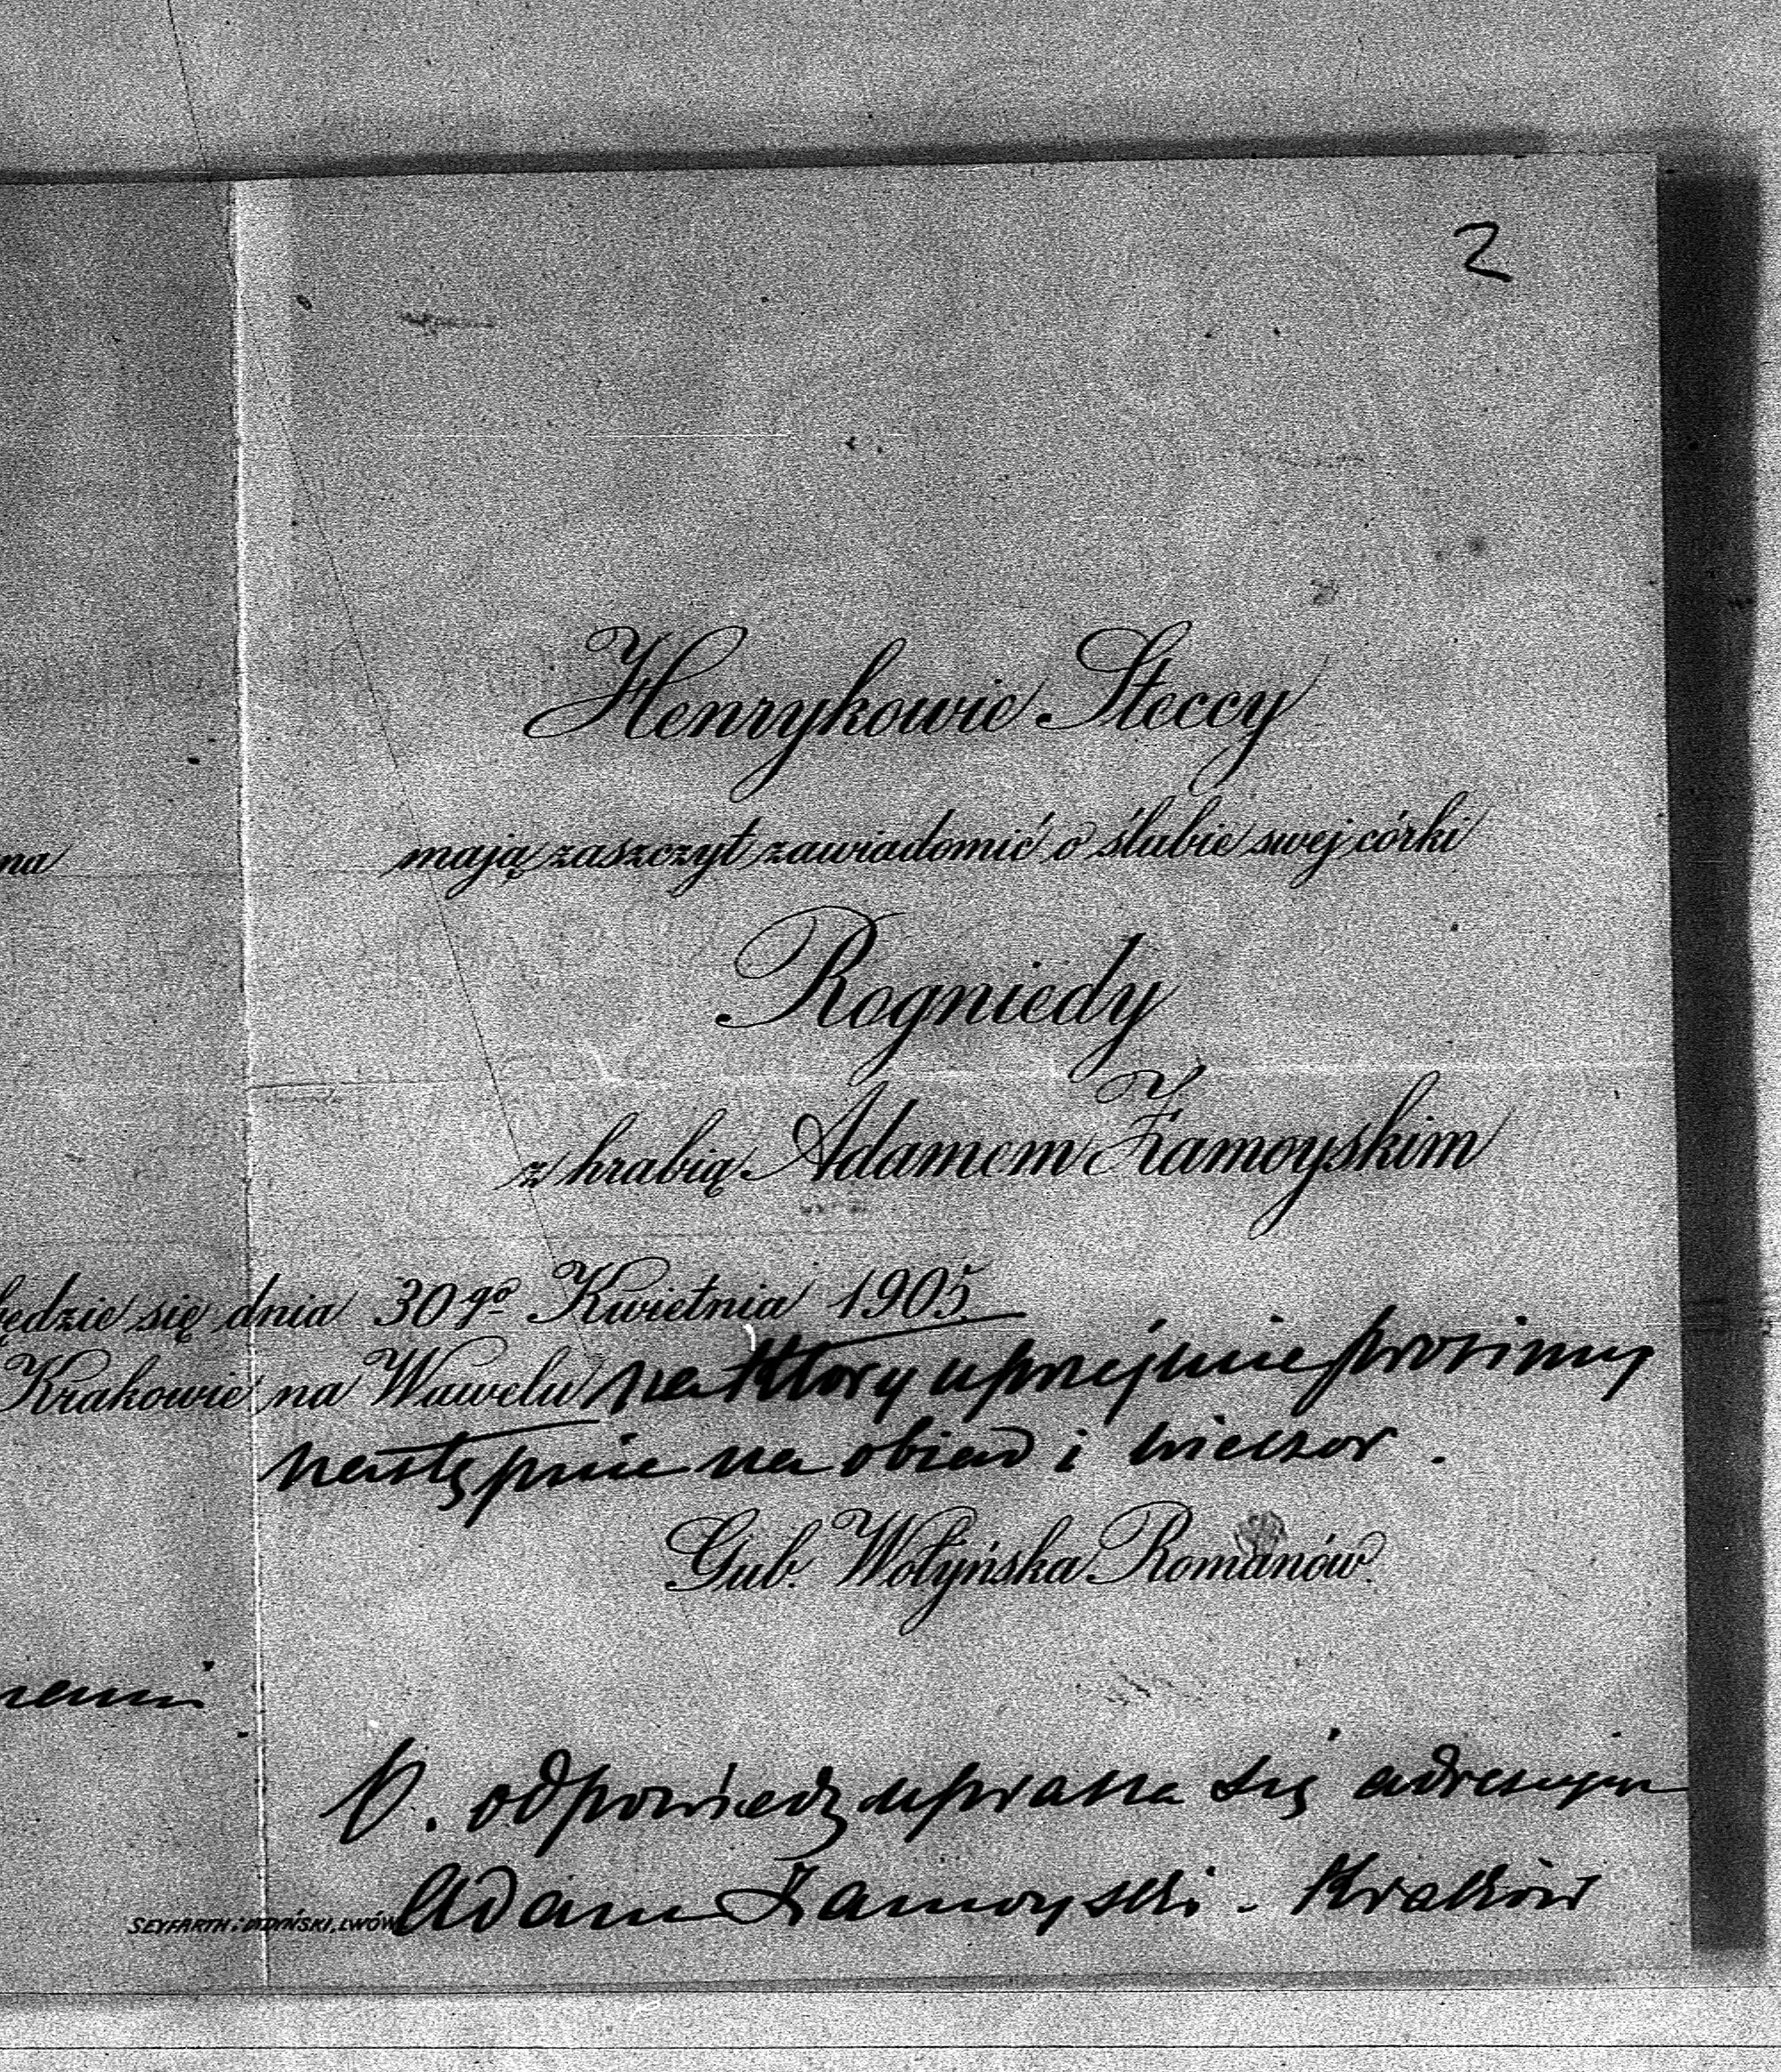 2
Henrykowie Steccy
na
mają zaszczyt zawiadomić o ślubie swej córki
Rogniedy
z hrabią Adamem Zamoyskim
będzie się dnia 30go Kwietnia 1905.
Krakowie na Wawelu na który uprzejmie prosimy
następnie na obiad i wieczor.
Gub. Wołyńska Romanów.
O. odpowiedz uprasza się adresując
Adam Zamoyski - Kraków
SEYFARTH i DYDYŃSKI, LWÓW